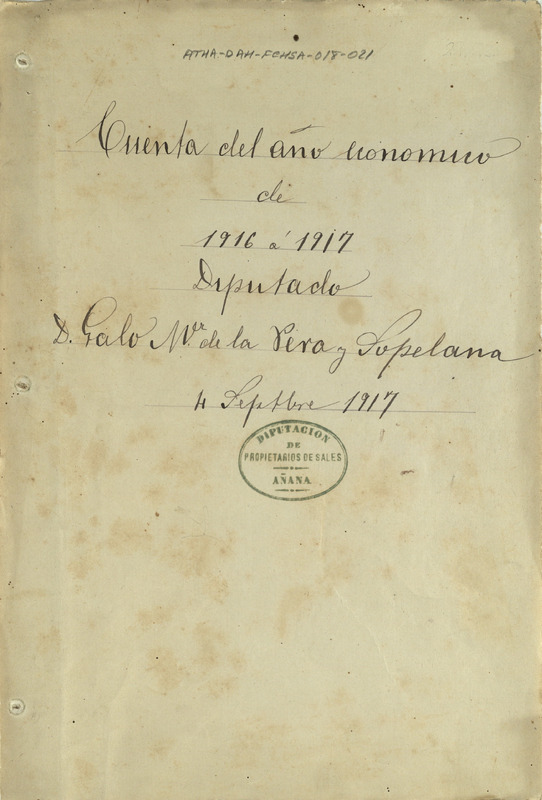 ATHA-DAH-FCHSA-018-021
Cuenta del año economico
de
1916 á 1917
Diputado
D. Galo Mª de la Pera y Sopelana
4 Septbre 1917
DIPUTACION
DE
PROPIETARIOS DE SALES
AÑANA